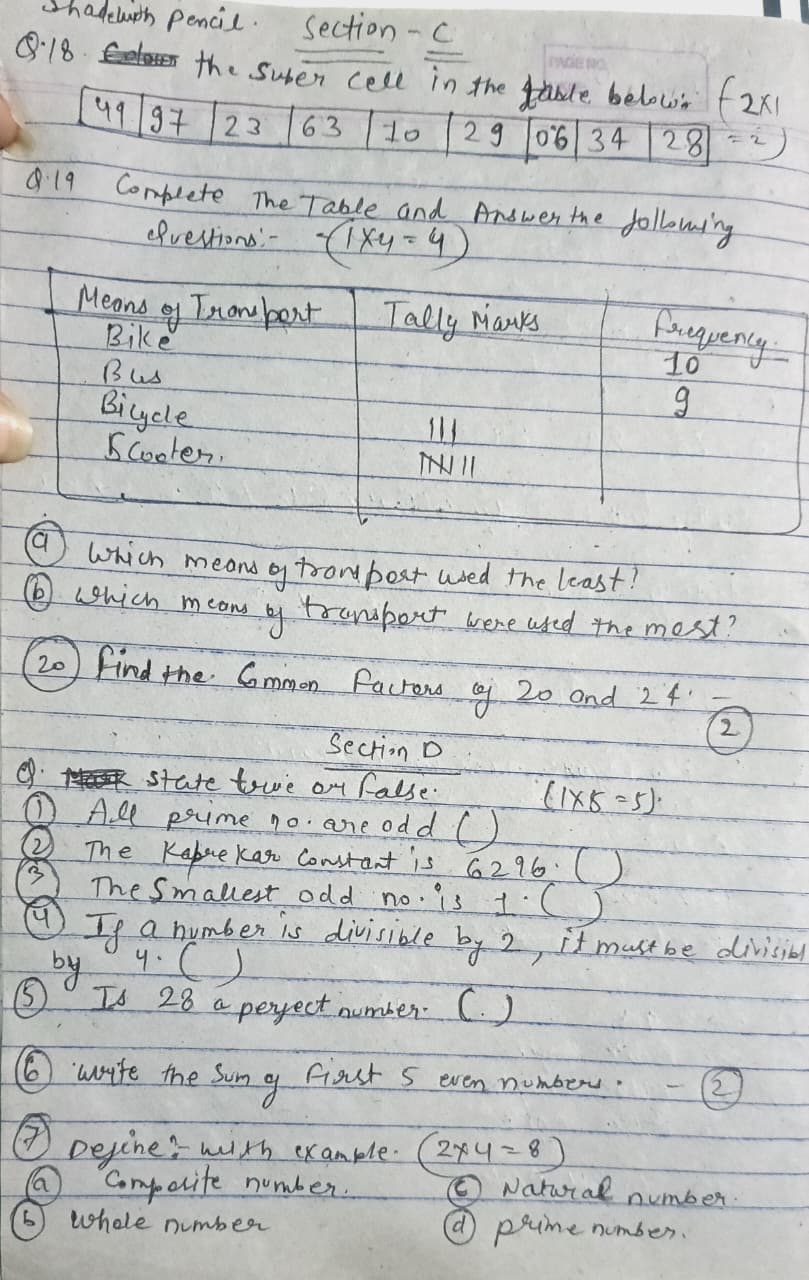 Shade with pencil.
Section - C
PAGE NO.
Q.18. the super cell in the table below:- (2x1
49 97 23 63 10 29 06 34 28 = 2)
Q.19 Complete The Table and Answer the following
questions:- - (1x4 = 4)
Means of Transport Tally Marks frequency.
Bike 10
Bus 9
Bicycle |||
Scooter. |||| ||
(a) Which means of transport used the least?
(b) which means of transport were used the most?
(20) find the Common factors of 20 and 24. -
(2)
Section D
Q. state true or false. (1x5 = 5).
(1) All prime no. are odd ( )
(2) The Kaprekar Constant is 6296. ( )
(3) The Smallest odd no. is 1. ( )
(4) If a number is divisible by 2, it must be divisibl
by 4. ( )
(5) Is 28 a perfect number. (.)
(6) write the Sum of first 5 even numbers. - (2)
(7) Define:- with example. (2x4 = 8)
(a) Composite number. (c) Natural number.
(b) whole number (d) prime number.